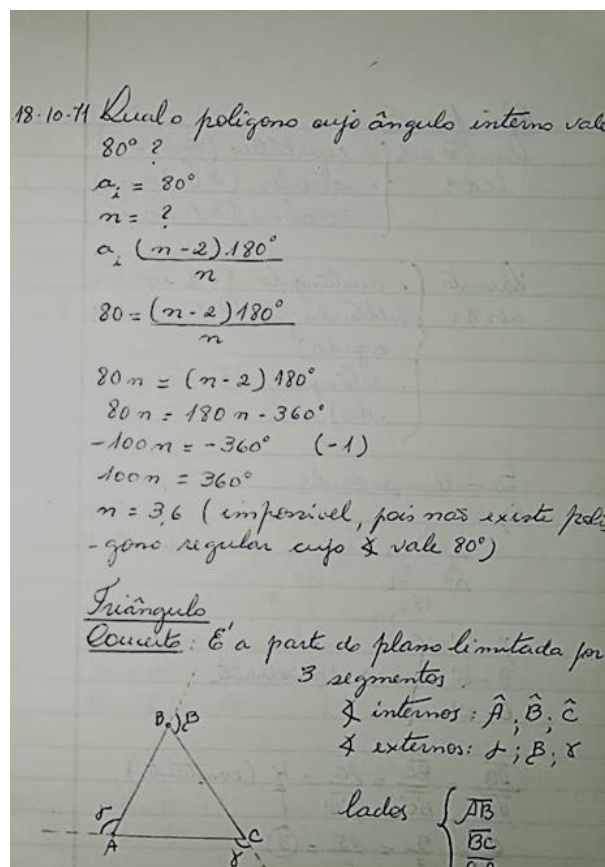 18-10-71 Qual o polígono cujo ângulo interno vale
80° ?
a_i = 80°
n = ?
a_i (n-2).180°
n
80 = (n-2)180°
n
80n = (n-2) 180°
80n = 180n - 360°
-100n = -360° (-1)
100n = 360°
n = 3,6 (impossível, pois não existe polí
-gono regular cujo ∡ vale 80°)
Triângulo
Conceito: É a parte do plano limitada por
3 segmentos.
∡ internos: Â; B̂; Ĉ
∡ externos: α; β; γ
B β
lados { AB
BC
γ
A C
γ